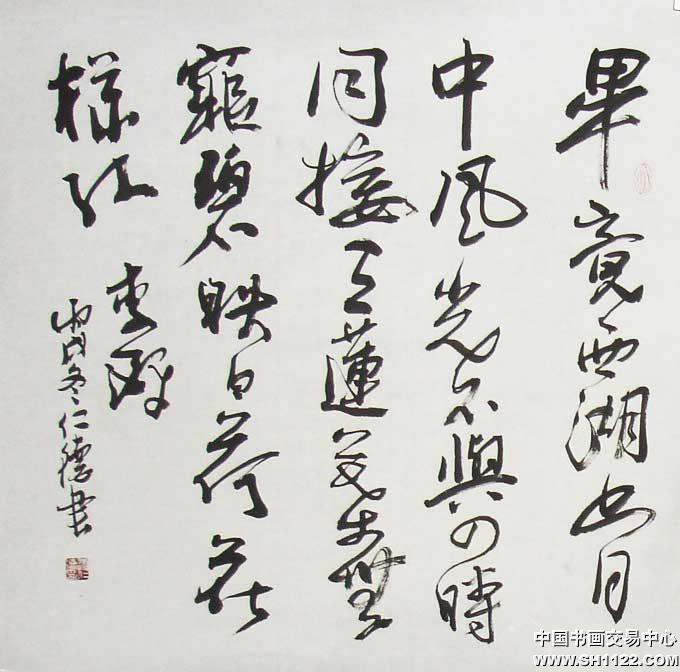 畢竟西湖六月
中風光不與四時
同接天蓮葉無
窮碧映日荷花
樣紅
丙戌冬仁德書
中国书画交易中心
www.SH1122.com